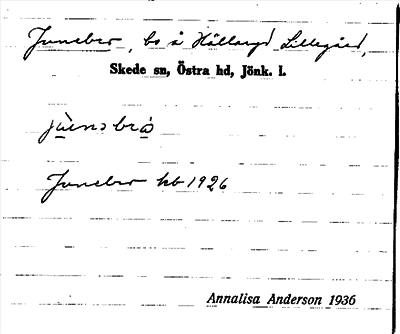 Junebro, bs å Hällaryd Lillegård,
Skede sn, Östra hd, Jönk. l.
jùenɔbrò
Junebro kb 1926
Annalisa Anderson 1936